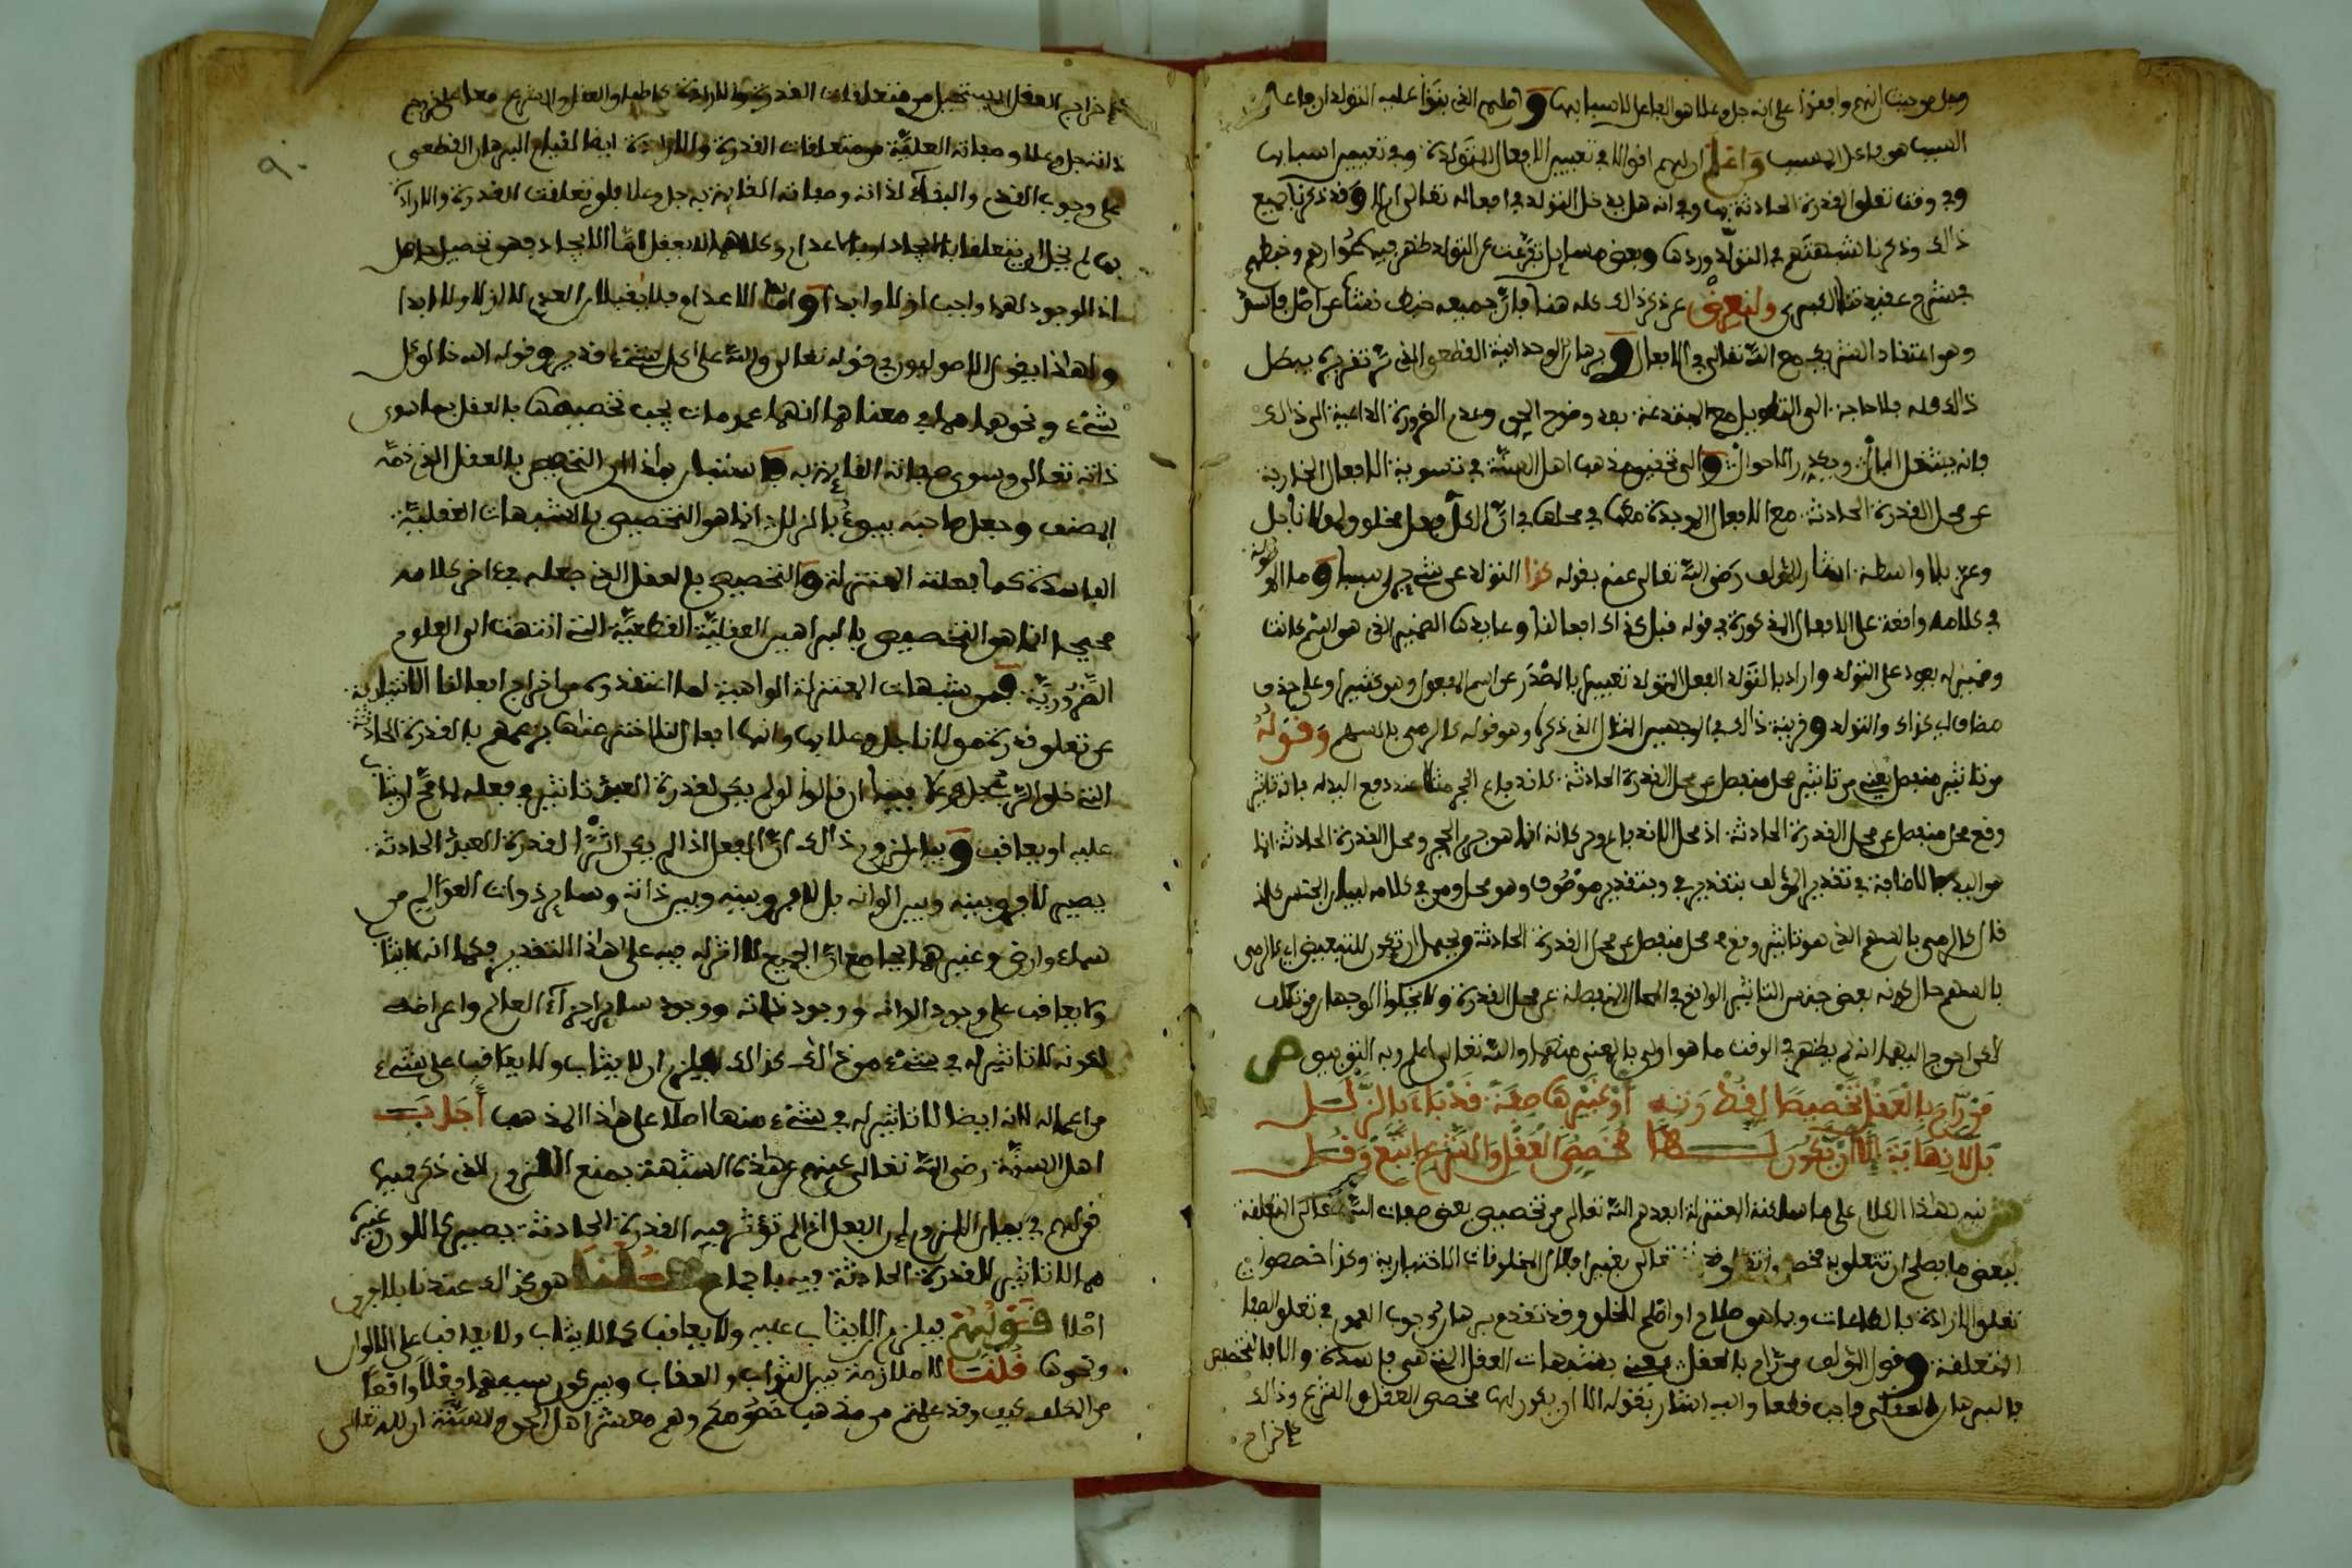 السبب هو فاعل المسبب واعلم ان لهم اقوالا في تعيين الافعال المتولدة وفي تعيين اسبابها
وفي وقت تعلق القدرة الحادثة بها وفي انه هل يدخل التولد في افعاله تعالى ام لا وقد ذكرنا جميع
ذالك وذكرنا شبهتهم في التولد وردها وبعض مسايل تفرعت عن التولد ظهر فيها عوارهم وخبطهم
في شرح عقيدتنا الكبرى ولنعرض عن ذكر ذالك كله هنا فان جميعه خبط نشأ عن اصل فاسد
وهو اعتقاد الشريك مع الله تعالى في الافعال وبرهان الوحدانية القطعي الذي مر تقريره يبطل
ذالك كله فلا حاجة الى التطويل مع المبتدعة بعد وضوح الحق وعدم الضرورة الداعية الى ذالك
فانه يشغل البال ويكدر الاحوال والى تحقيق مذهب اهل السنة في تسوية الافعال الخارجة
عن محل القدرة الحادثة مع الافعال الموجودة معها في محلها في ان الكل فعل مخلوق لمولانا جل
وعز بلا واسطة اشار المؤلف رضي الله تعالى عنه بقوله كذا التولد عن شيء جرى سببا وما الموصولة
في كلامه واقعة على الافعال المذكورة في قوله قبل كذاك افعالنا وعايدها الضمير الذي هو اسم كانت
وضمير له يعود على التولد واراد بالتولد الفعل المتولد تعبيرا بالمصدر عن اسم المفعول وهو كثير او على حذف
مضاف اي كذاك ذو التولد وقرينة ذالك في الوجهين المثال الذي ذكر وهو قوله كالرمي بالسهم وقوله
من تاثير منفصل يعني من تاثير محل منفصل عن محل القدرة الحادثة كاندفاع الحجر مثلا عند دفع اليد له فانه تاثير
وقع محل منفصل عن محل القدرة الحادثة اذ محل الاندفاع وحركاته انما هو جرم الحجر ومحل القدرة الحادثة انما
هو اليد فالاضافة في تقدير المؤلف بتقدير في وبتقدير موصوف وهو محل ومن في كلامه لبيان الجنس كانه
قال كالرمي بالسهم الذي هو تاثير وقع في محل منفصل عن محل القدرة الحادثة ويحتمل ان تكون للتبعيض اي كالرمي
بالسهم حال كونه بعض جنس التاثير الواقع في المحال المنفصلة عن محل القدرة ولا يخلوا الوجهان من تكلف
لكن احوج اليهما انه لم يظهر في الوقت ما هو اولى بالمعنى منهما والله تعالى اعلم وبه التوفيق ص
من رام بالعقل تخصيصا لقدرته او غيرها صفة قد باء بالزلل
بلا نهاية الا ان يكون لها مخصص العقل والشرع اتبع وقل
ش نبه بهذا الكلام على ما سلكته المعتزلة ابعدهم الله تعالى من تخصيص بعض صفات الله تعالى المتعلقة
تعلق الارادة بالطاعات وبما هو صلاح او اصلح للخلق وقد تقدم برهان وجوب العموم في تعلق الصفات
المتعلقة وقول المؤلف من رام بالعقل يعني بشبهات العقل التي هي فاسدة والا فالتخصيص
بالبرهان العقلي واجب قطعا واليه اشار بقوله الا ان يكون لها مخصص العقل والشرع وذالك
كاخراج
٩٠
ذاته جل وعلا وصفاته العلية من متعلقات القدرة والارادة ايضا لقيام البرهان القطعي
على وجوب القدم والبقاء لذاته وصفاته القايمة به جل وعلا فلو تعلقت القدرة والارادة
بها لم يخل ان يتعلقا بالايجاد او بالاعدام وكلاهما لا يعقل اما الايجاد فهو تحصيل حاصل
اذ الوجود لها واجب ازلا وابدا واما الاعدام فلا يقبلان العدم لا ازلا ولا ابدا
ولهذا يقول الاصوليون في قوله تعالى والله على كل شيء قدير وقوله الله خالق كل
شيء ونحوهما مما في معناهما انهما عمومات يجب تخصيصها بالعقل بما سوى
ذاته تعالى وسوى صفاته القايمة به فاستبان بهذا ان التخصيص بالعقل الذي ذمه
المصنف وجعل صاحبه يبوء بالزلل انما هو التخصيص بالشبهات العقلية
الفاسدة كما فعلته المعتزلة والتخصيص بالعقل الذي جعله في ءاخر كلامه
صحيحا انما هو التخصيص بالبراهين العقلية القطعية التي انتهت الى العلوم
الضرورية فمن شبهات المعتزلة الواهية لما اعتقدوه من اخراج افعالنا الاختيارية
عن تعلق قدرة مولانا جل وعلا بها وانها افعال لنا اخترعناها بزعمهم بالقدرة الحادثة
التي خلق الله جل وعلا فينا ان قالوا لو لم يكن لقدرة العبد تاثير في فعله لما صح ان يثاب
عليه او يعاقب وبيان لزوم ذالك ان الفعل اذا لم يكن اثرا لقدرة العبد الحادثة
يصير لا فرق بينه وبين الوانه بل لا فرق بينه وبين ذاته وساير ذوات العوالم من
سماء وارض وغيرهما بجامع ان الجميع لا اثر له فيه على هذا التقدير فكما انه لا يثاب
ولا يعاقب على وجود الوانه ووجود ذاته ووجود ساير اجزاء العالم واعراضه
لكونه لا تاثير له في شيء من ذالك كذالك يلزم ان لا يثاب ولا يعاقب على شيء
من اعماله لانه ايضا لا تاثير له في شيء منها اصلا على هذا المذهب أجاب
اهل السنة رضي الله تعالى عنهم عن هذه الشبهة بمنع اللزوم الذي ذكر فيها
قولهم في بيان اللزوم ان الفعل اذا لم تؤثر فيه القدرة الحادثة يصير كاللون وغيره
مما لا تاثير للقدرة الحادثة فيه باجماع قلنا هو كذالك عندنا بلا فرق
اصلا قولهم فيلزم ان لا يثاب عليه ولا يعاقب كما لا يثاب ولا يعاقب على الالوان
ونحوها قلنا لا ملازمة بين الثواب والعقاب وبين كون سببهما فعلا واقعا
من المكلف كيف وقد علمتم من مذهب خصومكم وهم معشر اهل الحق والسنة ان لله تعالى